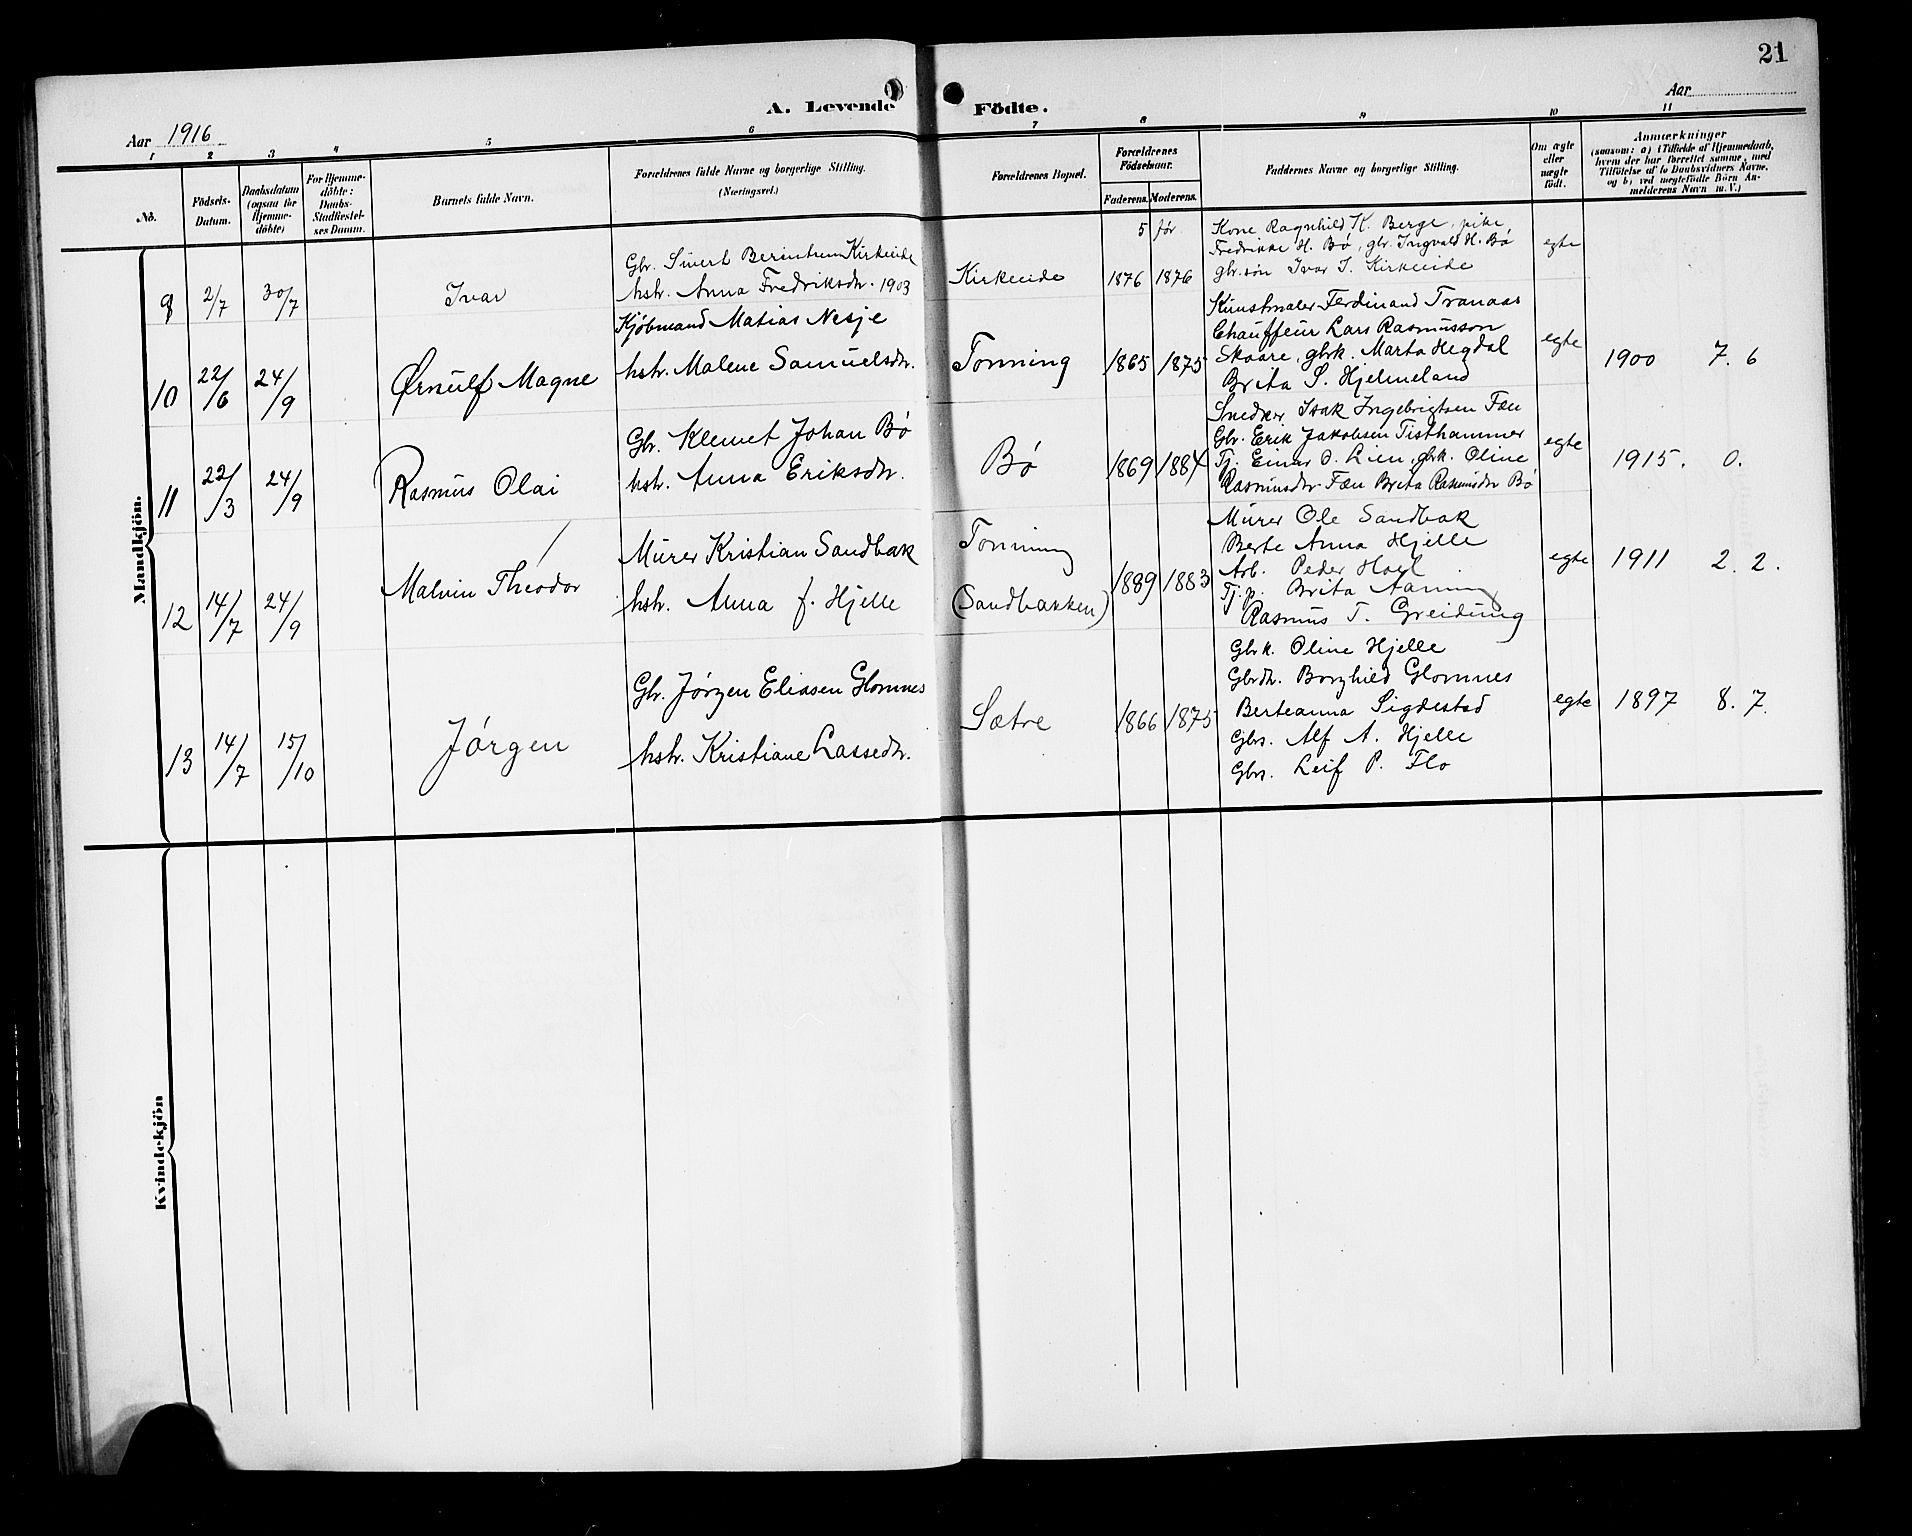 21
A. Levende Födte.
Aar 1916
Aar
1 2 3 4 5 6 7 8 9 10 11
No.
Födsels-Datum.
Daabsdatum (ogsaa for Hjemme-döbte)
For Hjemme-döbte: Daabs-Stadfæstel-ses Datum.
Barnets fulde Navn.
Forældrenes fulde Navne og borgerlige Stilling. (Næringsvei.)
Forældrenes Bopæl.
Forældrenes Födselsaar.
Faderens. Moderens.
Faddernes Navne og borgerlige Stilling.
Om ægte eller uægte födt.
Anmærkninger
(saasom: a) i Tilfælde af Hjemmedaab,
hvem der har forrettet samme, med
Tilföielse af to Daabsvidners Navne,
og b) ved uægtefödte Börn An-
melderens Navn m. V.)
Mandkjön.
8 2/7 30/7 Ivar
Gbr. Sivert Kirkeide
hstr. Anna Fredriksdtr. 1903
Kirkeide
5 før
1876 1876
Kone Ragnhild K. Berge, pike
Fredrikke H. Bø, gbr. Ingvald H. Bø
gbr.søn Ivar I. Kirkeeide
egte
10 22/6 24/9 Ørnulf Magne
Kjøbmand Matias Nesje
hstr. Malene Samuelsdtr.
Tonning
1865 1875
Kunstmaler Ferdinand Tranaas
Chauffeur Lars Rasmusson
Skaare, gbrk. Marta Hegdal
Brita S. Hjelmeland
egte
1900 7. 6
11 22/3 24/9 Rasmus Olai
Gbr. Klemet Johan Bø
hstr. Anna Eriksdtr.
Bø
1869 1884
Snedker Isak Ingebrigtsen Fæn
Gbr. Erik Jakobsen Tisthammer
Tj. Einar O. Lien, gbrk. Oline
Rasmusdtr Fæn Brita Rasmusdtr Bø
egte
1915. 0.
12 14/7 24/9 Malvin Theodor
Murer Kristian Sandbak
hstr. Anna f. Hjelle
Tonning
(Sandbakken)
1889 1883
Murer Ole Sandbak
Berte Anna Hjelle
Arb. Peder Hoel
Tj.p. Brita Aaning
Rasmus T. Greidung
egte
1911 2. 2.
13 14/7 15/10 Jørgen
Gbr. Jørgen Eliasen Glomnes
hstr. Kristiane Lassedtr.
Sætre
1866 1875
Gbrk. Oline Hjelle
Gbrdtr. Borghild Glomnes
Berteanna Sigdestad
Gbrs. Alf A. Hjelle
Gbrs. Leif P. Flo
egte
1897 8. 7.
Kvindekjön